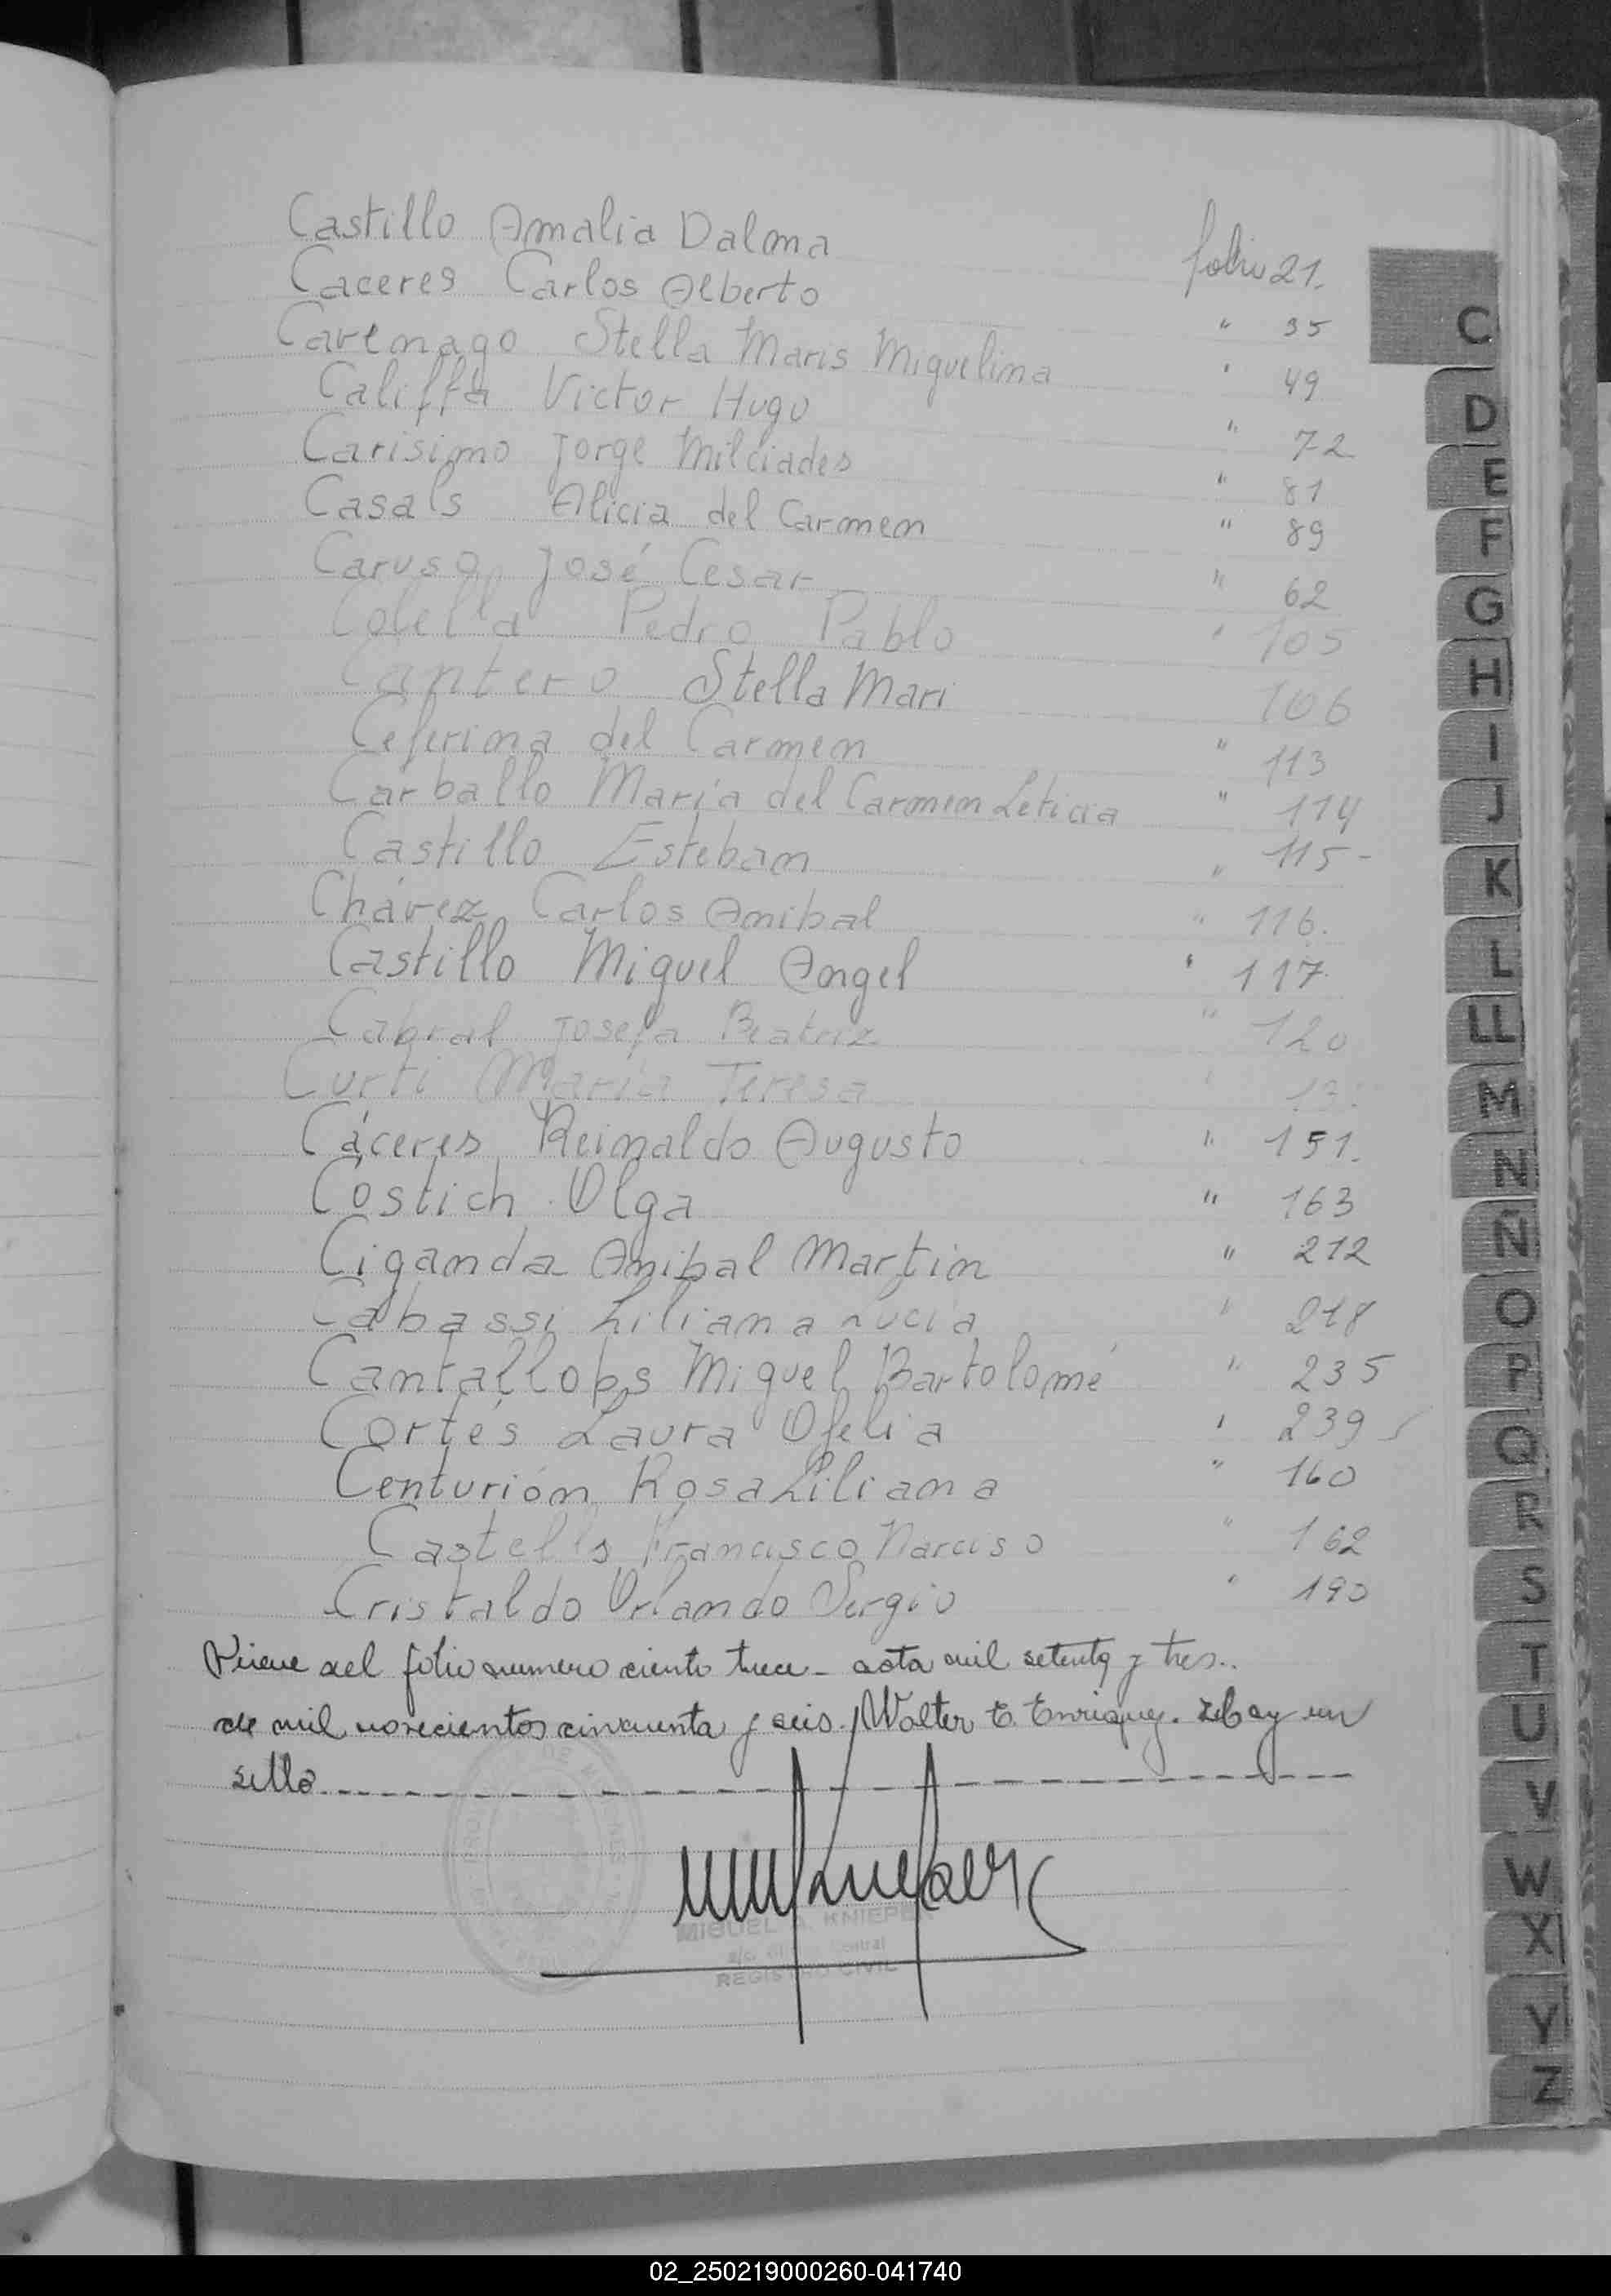 Castillo Amalia Dalma folio 21.
Caceres Carlos Alberto " 35
Cavenago Stella Maris Miguelina " 49
Califfa Victor Hugo " 72
Carisimo Jorge Milciades " 81
Casals Alicia del Carmen " 89
Caruso José Cesar " 62
Colella Pedro Pablo " 105
Cantero Stella Mari 106
Ceferina del Carmen " 113
Carballo María del Carmen Leticia " 114
Castillo Esteban " 115-
Chávez Carlos Anibal " 116.
Castillo Miguel Angel " 117.
Cabral Josefa Beatriz " 120
Curti María Teresa "
Cáceres Reinaldo Augusto " 151.
Costich Olga " 163
Ciganda Anibal Martin " 212
Cabassi Liliana Lucia " 218
Cantallops Miguel Bartolomé " 235
Cortés Laura Ofelia " 239
Centurión Rosa Liliana " 160
Castells Francisco Narciso " 162
Cristaldo Orlando Sergio " 190
Viene del folio numero ciento trece - acta mil setenta y tres..
de mil novecientos cincuenta y seis. Walter E. Enriquez. Hay un
sello
MIGUEL A. KNIEPER
REGISTRO CIVIL
C
D
E
F
G
H
I
J
K
L
LL
M
N
Ñ
O
P
Q
R
S
T
U
V
W
X
Y
Z
02_250219000260-041740